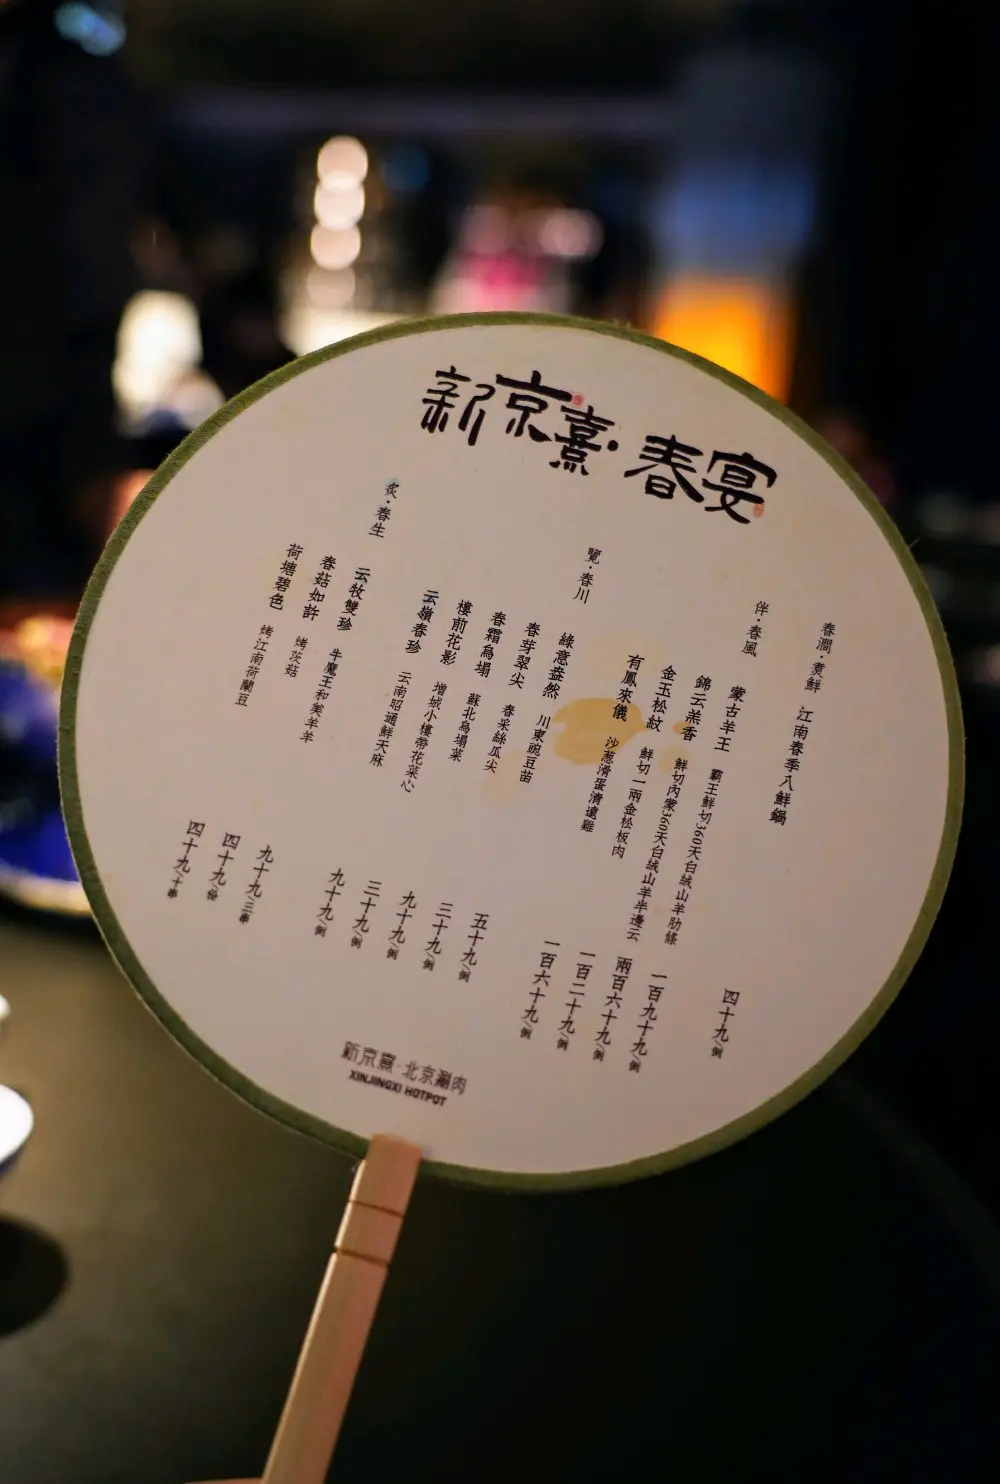 新京熹·春宴
春澗·煑鮮 江南春季八鮮鍋 四十九/例
伴·春風
蒙古羊王 霸王鮮切360天白絨山羊肋條 一百九十九/例
錦云羔香 鮮切內蒙360天白絨山羊半邊云 兩百六十九/例
金玉松紋 鮮切一兩金松板肉 一百二十九/例
有鳳來儀 沙葱滑蛋清遠雞 一百六十九/例
覽·春川
綠意盎然 川東豌豆苗 五十九/例
春芽翠尖 春采絲瓜尖 三十九/例
春霜烏塌 蘇北烏塌菜 九十九/例
樓前花影 增城小樓帶花菜心 三十九/例
云嶺春珍 云南昭通鮮天麻 九十九/例
炙·春生
云牧雙珍 牛魔王和美羊羊 九十九/三串
春菇如許 烤茨菇 四十九/份
荷塘碧色 烤江南荷蘭豆 四十九/十串
新京熹·北京涮肉
XINJINGXI HOTPOT